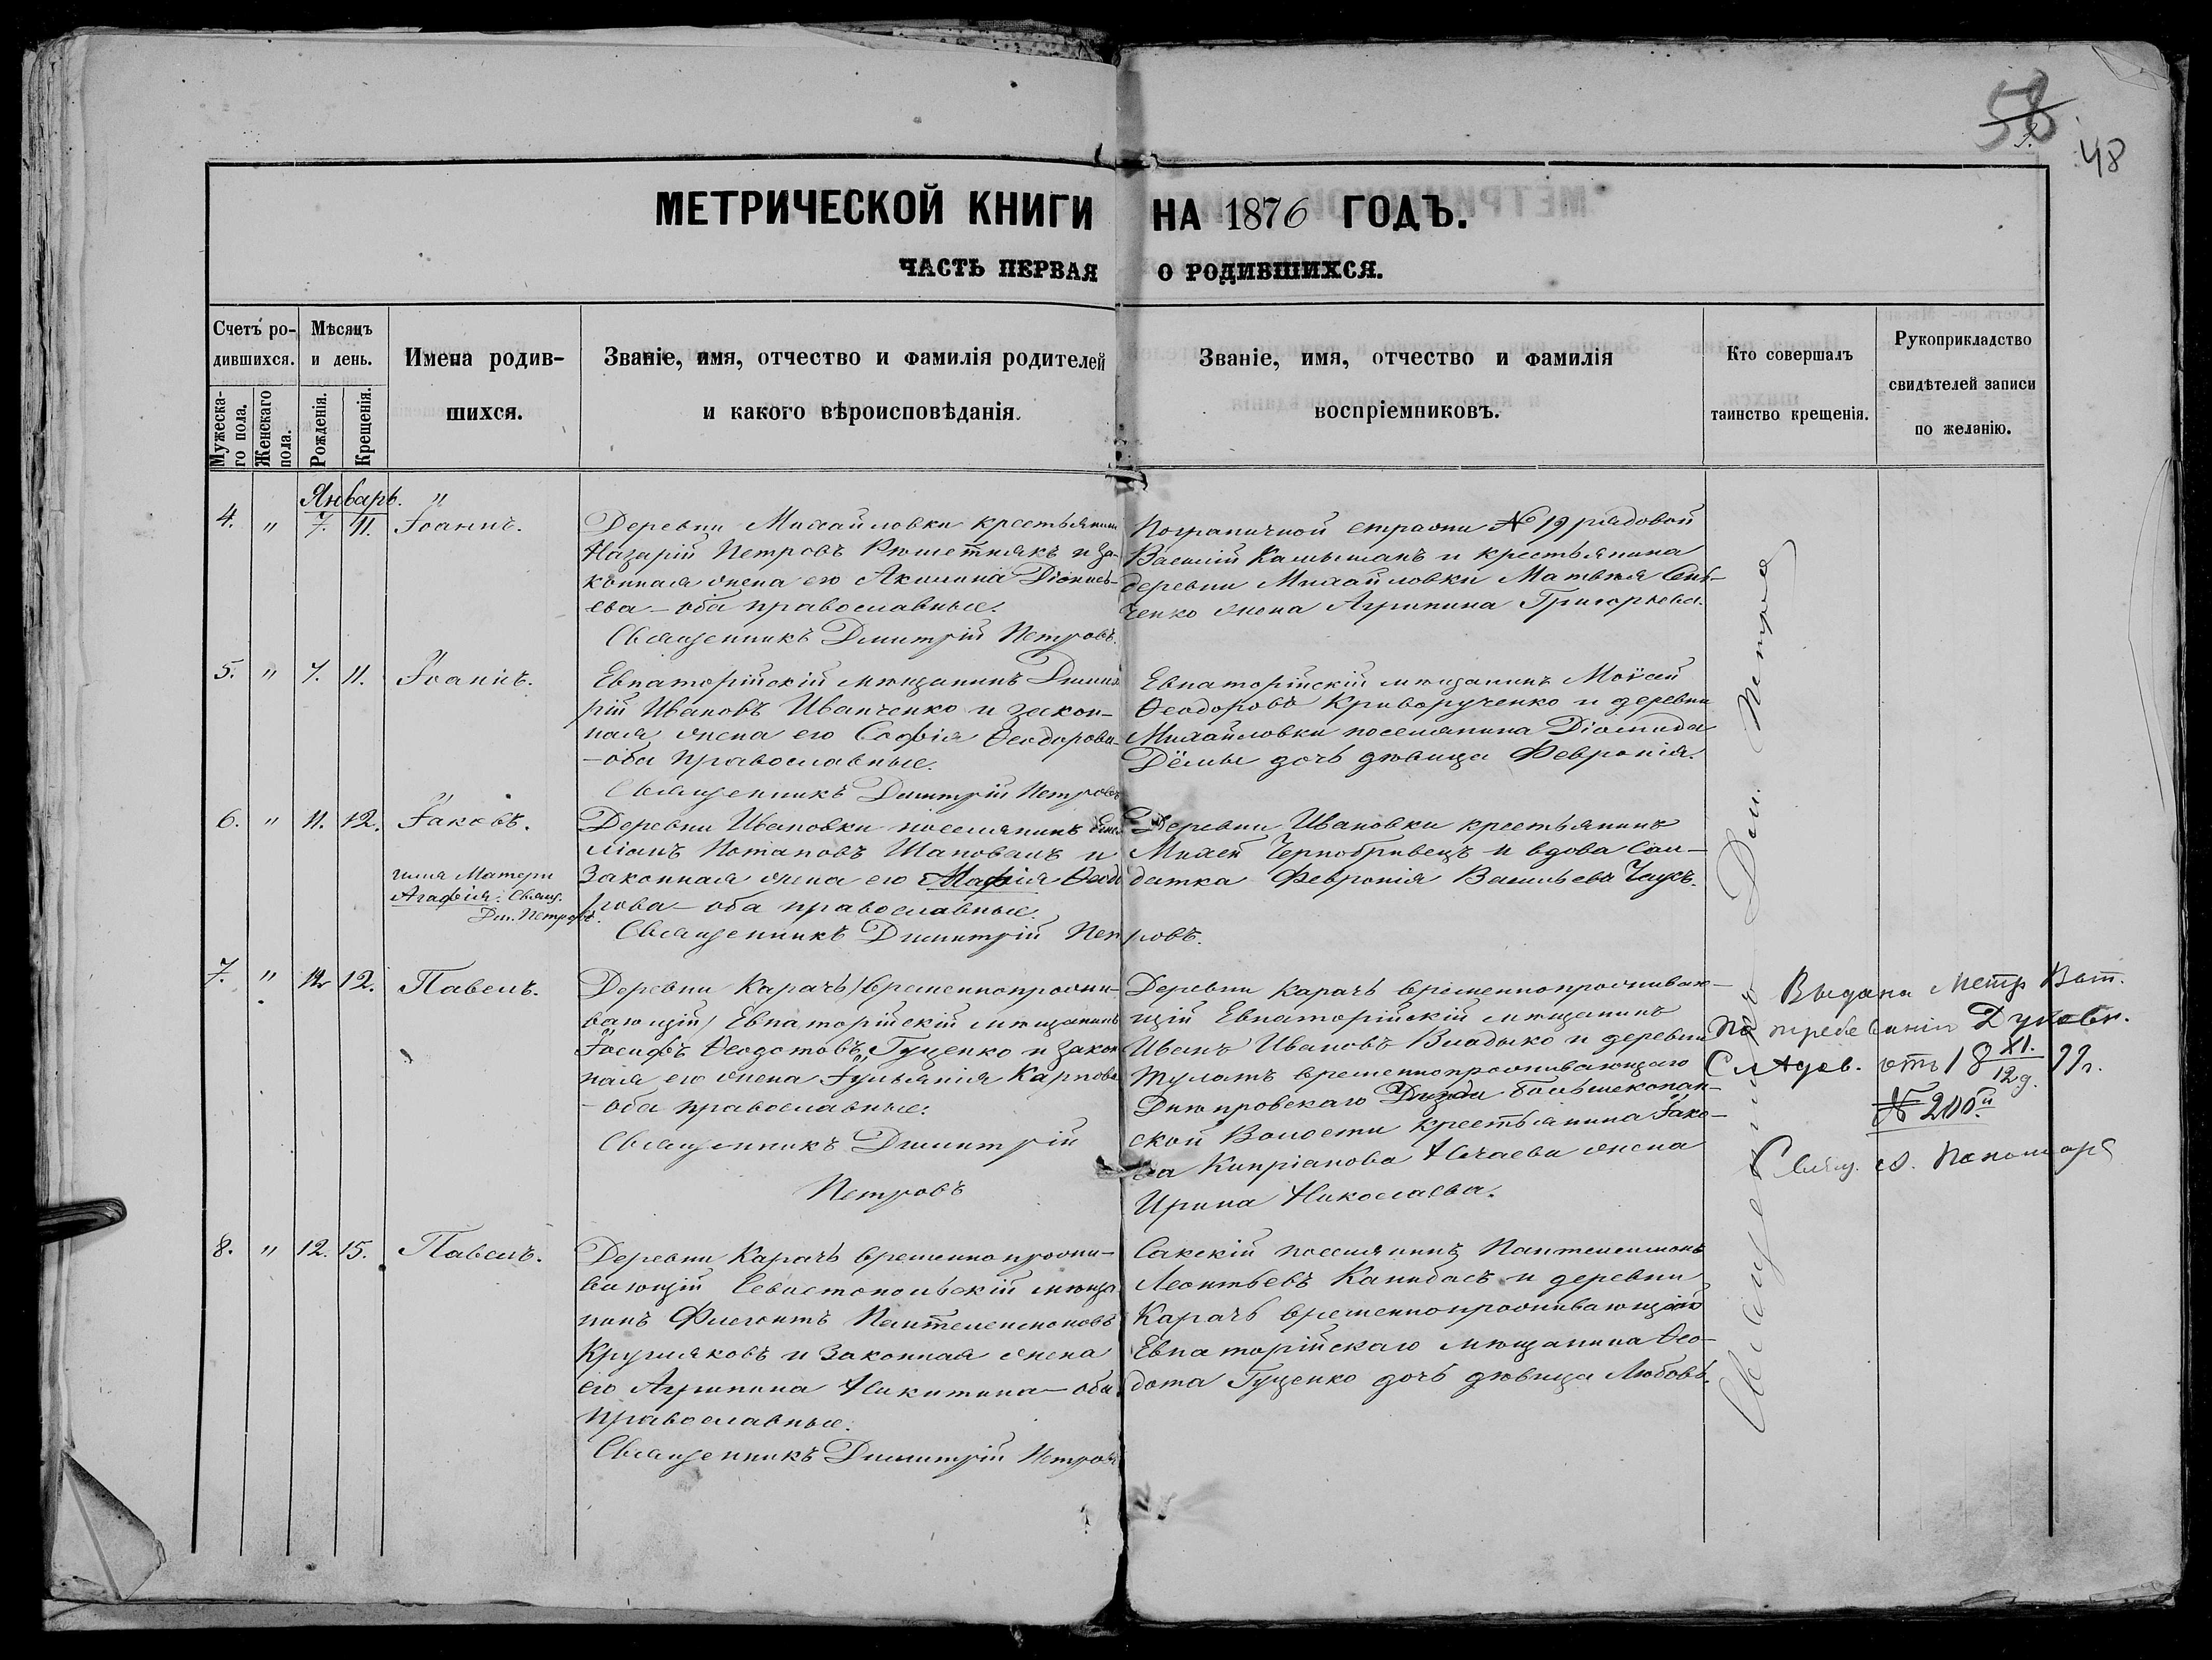 58
48
МЕТРИЧЕСКОЙ КНИГИ НА 1876 ГОДЪ.
ЧАСТЬ ПЕРВАЯ О РОДИВШИХСЯ.
Счетъ ро-
дившихся.
Мужеска-
го пола.
Женскаго
пола.
Мѣсяцъ
и день.
Рожденія.
Крещенія.
Имена родив-
шихся.
Званіе, имя, отчество и фамилія родителей
и какого вѣроисповѣданія.
Званіе, имя, отчество и фамилія
воспріемниковъ.
Кто совершалъ
таинство крещенія.
Рукоприкладство
свидѣтелей записи
по желанію.
Январь.
4. " 7. 11. Іоаннъ.
Деревни Михайловки крестьянинъ
Назарій Петровъ Рѣшетнякъ и за-
конная жена его Акилина Діонись-
ева – оба православные.
Священникъ Димитрій Петровъ.
Пограничной стражи № 19 рядовой
Василій Камышанъ и крестьянина
деревни Михайловки Матвѣя Сень-
ченко жена Агрипина Григорьева.
5. " 7. 11. Іоаннъ.
Евпаторійскій мѣщанинъ Димит
рій Ивановъ Иванченко и закон-
ная жена его Софія Ѳеодорова
– оба православные.
Священникъ Димитрій Петровъ
Евпаторійскій мѣщанинъ Моѵсей
Ѳеодоровъ Криворученко и деревни
Михайловки поселянина Діомида
Дёмы дочь дѣвица Февронія.
6. " 11. 12. Іаковъ.
имя Матери
Агафія: Свящ.
Дм. Петровъ.
Деревни Ивановки поселянинъ Еме
ліанъ Потаповъ Шаповалъ и
Законная жена его Марія Ѳеодо
рова – оба православные.
Священникъ Димитрій Петровъ.
Деревни Ивановки крестьянинъ
Михей Чернобривецъ и вдова Сол-
датка Февронія Васильева Чаусъ.
7. " 12. Павелъ.
Деревни Карачъ /временнопрожи-
вающій/ Евпаторійскій мѣщанинъ
Іосифъ Ѳеодотовъ Гуценко и закон
ная его жена Іульянія Карпова
– оба православные.
Священникъ Димитрій
Петровъ
Деревни Карачъ временнопроживаю-
щій Евпаторійскій мѣщанинъ
Иванъ Ивановъ Владыко и деревни
Тулатъ временнопроживающаго
Днѣпровскаго Большекопан-
ской Волости крестьянина Іако-
ва Кипріанова Нечаева жена
Ирина Николаева.
Выдана Метр Вып.
по требованію Духовн.
отъ 18 XI/12 д. 99 г.
№ 200
Свящ. Пономаре
8. " 12. 15. Павелъ.
Деревни Карачъ временнопрожи-
вающій Севастопольскій мѣща
нинъ Флегонтъ Пантелеимоновъ
Кругляковъ и Законная жена
его Агрипина Никитина – оба
православные.
Священникъ Димитрій Петровъ
Сакскій поселянинъ Пантелеимонъ
Леонтьевъ Канидосъ и деревни
Карачъ временнопроживающаго
Евпаторійскаго мѣщанина Ѳео-
дота Гуценко дочь дѣвица Любовь.
Священникъ Дим. Петровъ